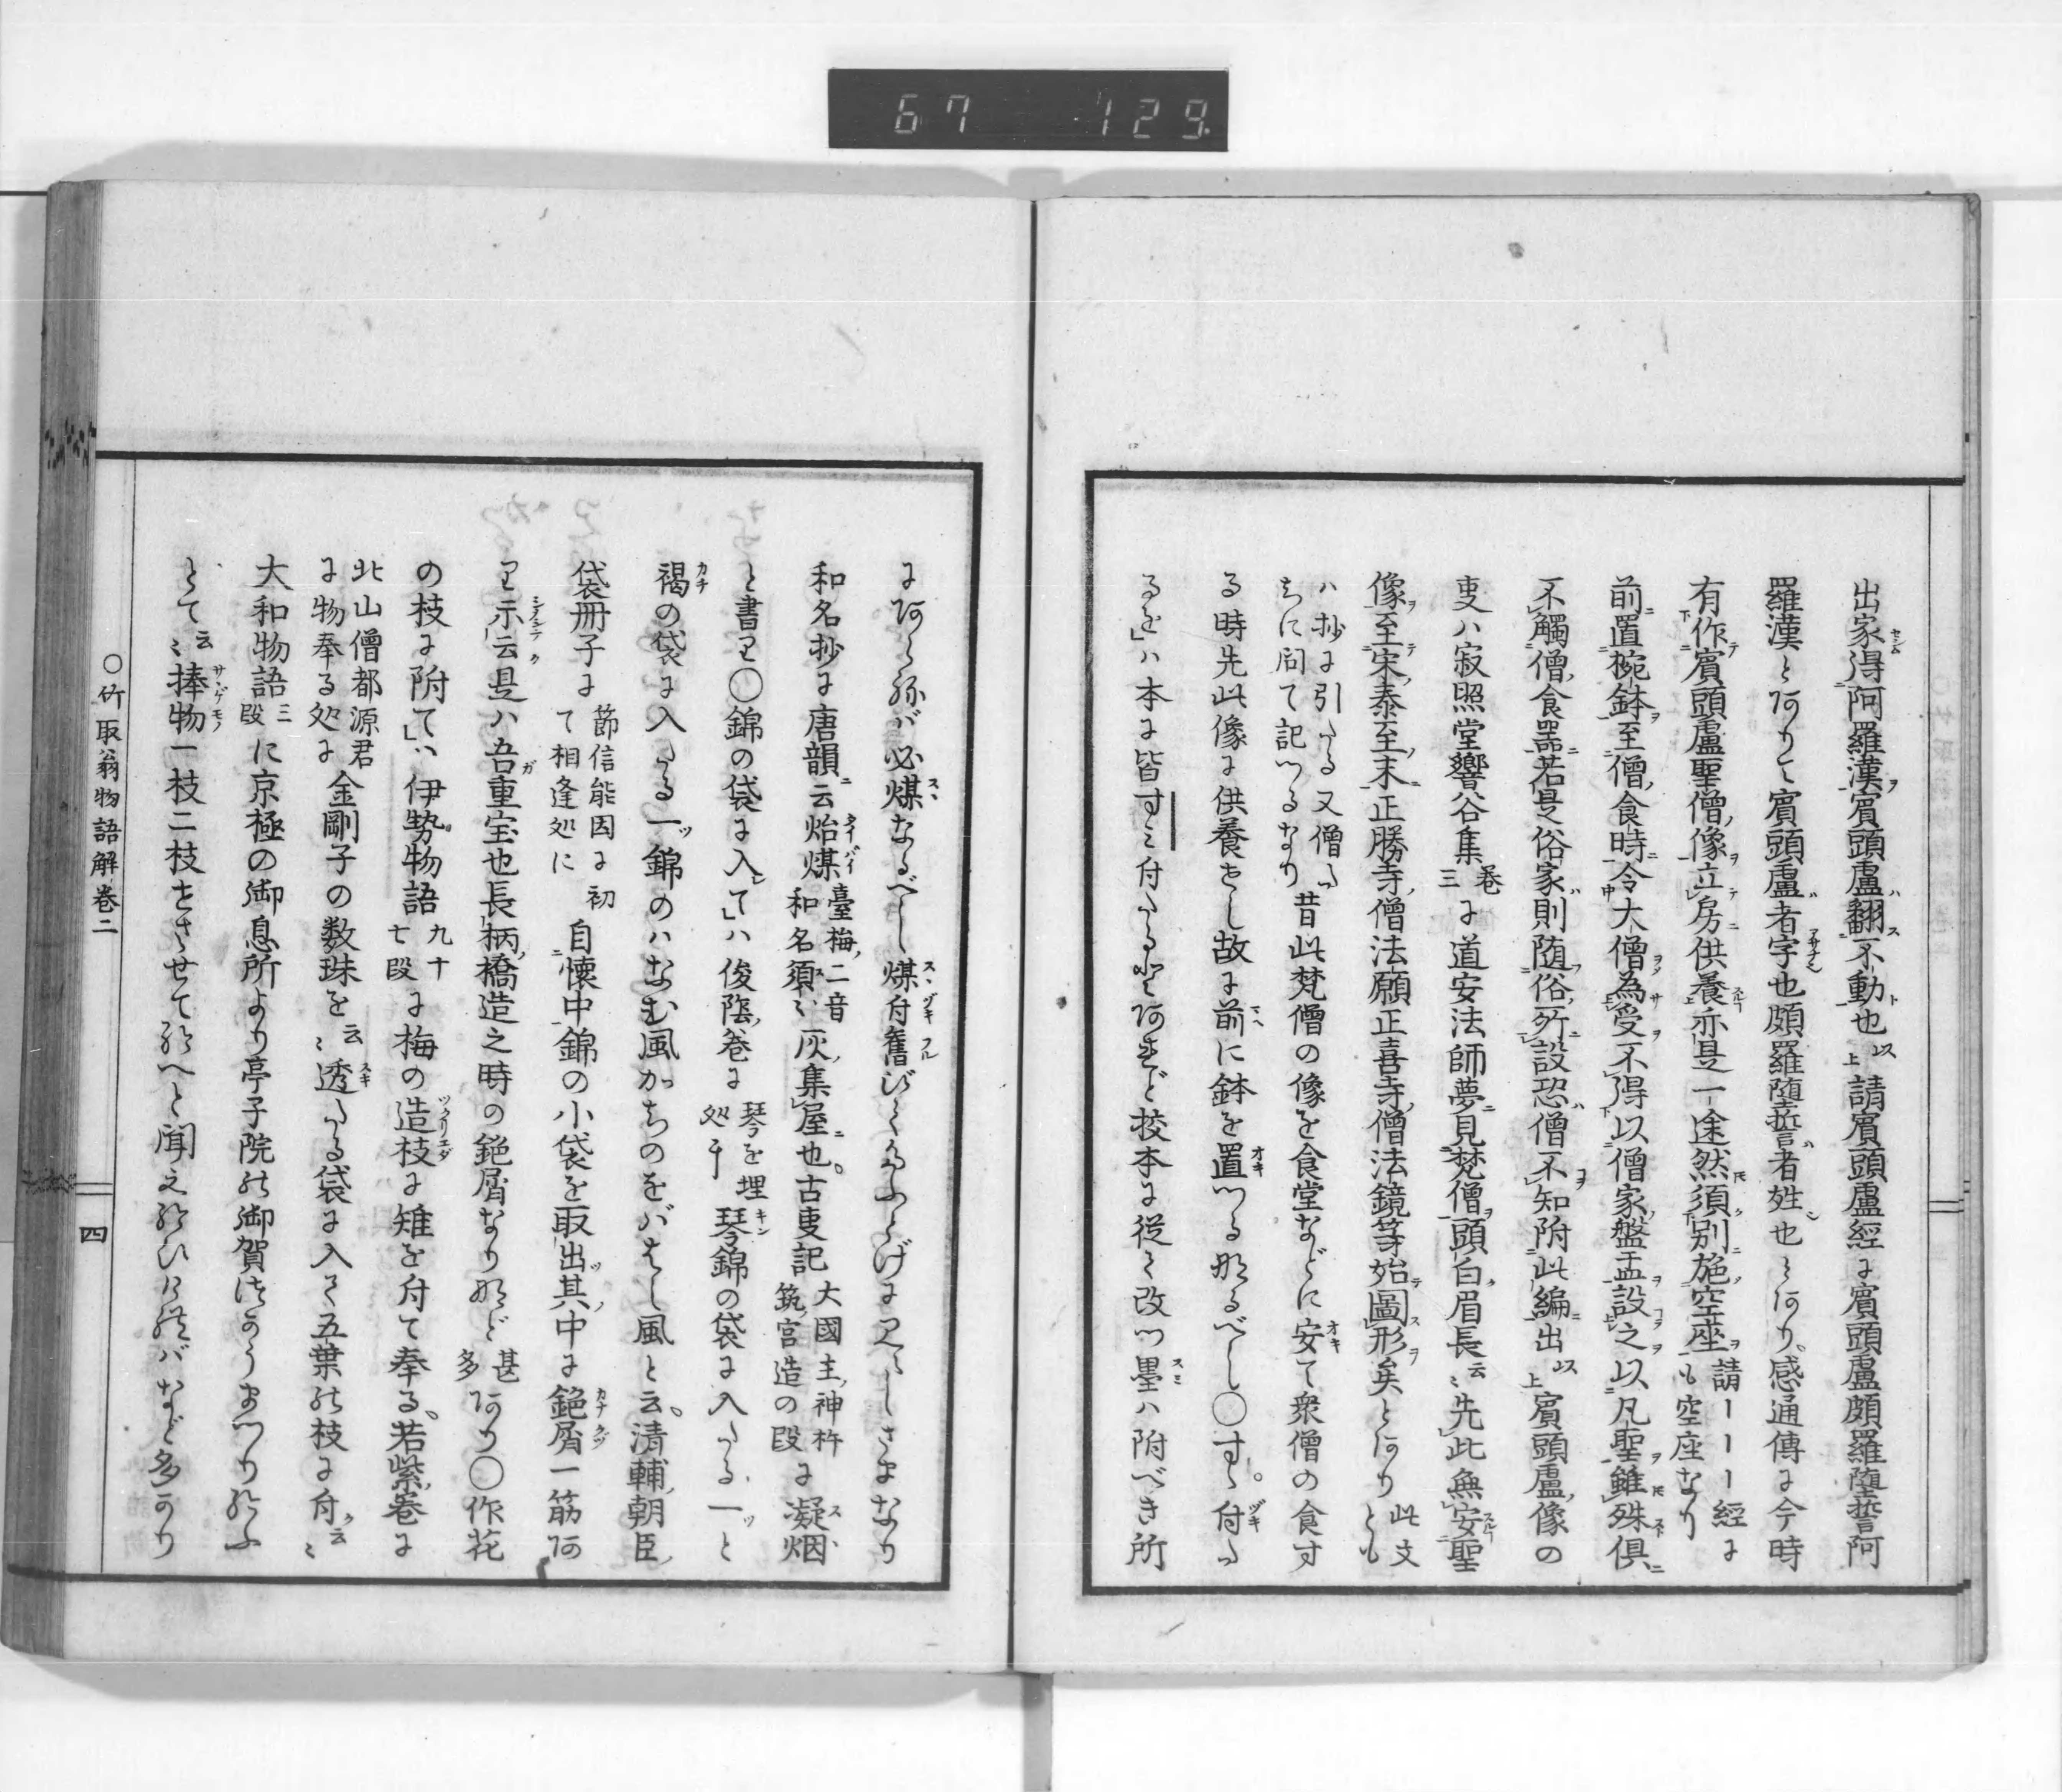 67 129
出家得阿羅漢賓頭盧翻不動也以上請賓頭盧經に賓頭盧頗羅堕誓阿
羅漢とありて賓頭盧者字也頗羅随誓者姓也とあり。感通傳に今時
有作賓頭盧聖僧像立房供養亦是一途然須別施空座請ーーー經に も空座なり
前置椀鉢至僧食時令大僧為受不得以僧家盤盂設之以凡聖雖殊俱
不觸僧食器若是俗家則随俗所設恐僧不知附此編出以上賓頭盧像の
叓ハ寂照堂響谷集卷三に道安法師夢見梵僧頭白眉長云々先此無安聖
像至宋泰至末正勝寺僧法願正喜寺僧法鏡等始圖形矣とあり此文とも
ハ抄に引たる又僧に問て記つるなり昔此梵僧の像を食堂などに安て衆僧の食す
る時先此像に供養せし故に前に鉢を置つる那るべし〇すゝ付た
るを」ハ本に皆すミ付たると阿れど挍本に從て改つ墨ハ附べき所
に阿らねバ必煤なるべし煤付舊びてたふとげに見えしさまなり
和名抄に唐韻云炲煤臺梅二音和名須々灰集屋也。古叓記大國主神杵筑宮造の段に凝烟
と書り〇錦の袋に入て」ハ俊蔭卷に琴を埋処干琴錦の袋に入たる一ッと
褐の袋に入たる一ッ錦のハなむ風かちのをバはし風と云。清輔朝臣
袋冊子に節信能因に初て相逢処に自懐中錦の小袋を取出其中に鉋屑一筋阿
り示云是ハ吾重宝也長柄橋造之時の鉋屑なり那ど甚多阿り〇作花
の枝に附て」ハ伊勢物語九十七段に梅の造枝に雉を付て奉る。若紫卷に
北山僧都源君に物奉る処に金剛子の数珠を云々透たる袋に入て五葉の枝に付云々
大和物語三段に京極の御息所より亭子院の御賀つかうまつり給ふ
とて云々捧物一枝二枝せさせて給へと聞え給ひけれバなど多かり
〇竹取翁物語解卷二
四